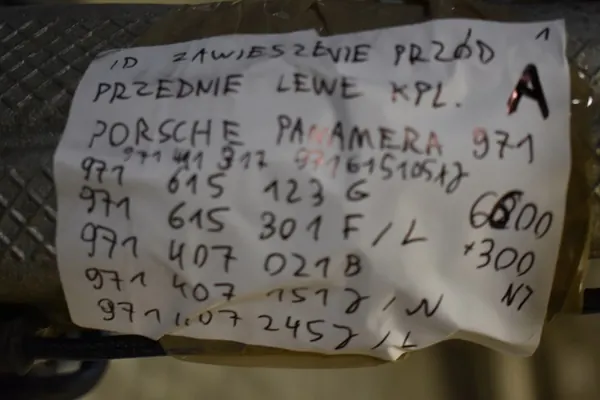 1
ID ZAWIESZENIE PRZÓD
PRZEDNIE LEWE KPL. A
PORSCHE PANAMERA 971
971 411 317 971615105
971 615 123 G
971 615 301 F/L 6800
971 407 021 B +300
971 407 151 J/N N7
971 407 245 J/L